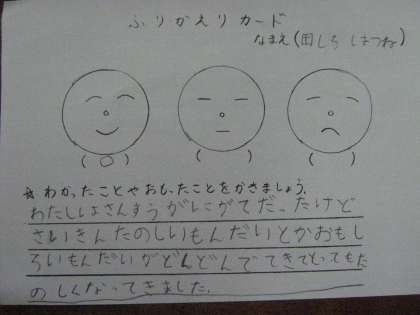 ふりかえりカード
なまえ(田しろ はつね)
(○) ( ) ( )
☆わかったことやおもったことをかきましょう。
わたしはさんすうがにがてだったけど
さいきんたのしいもんだいとかおもし
ろいもんだいがどんどんでてきてとってもた
のしくなってきました。